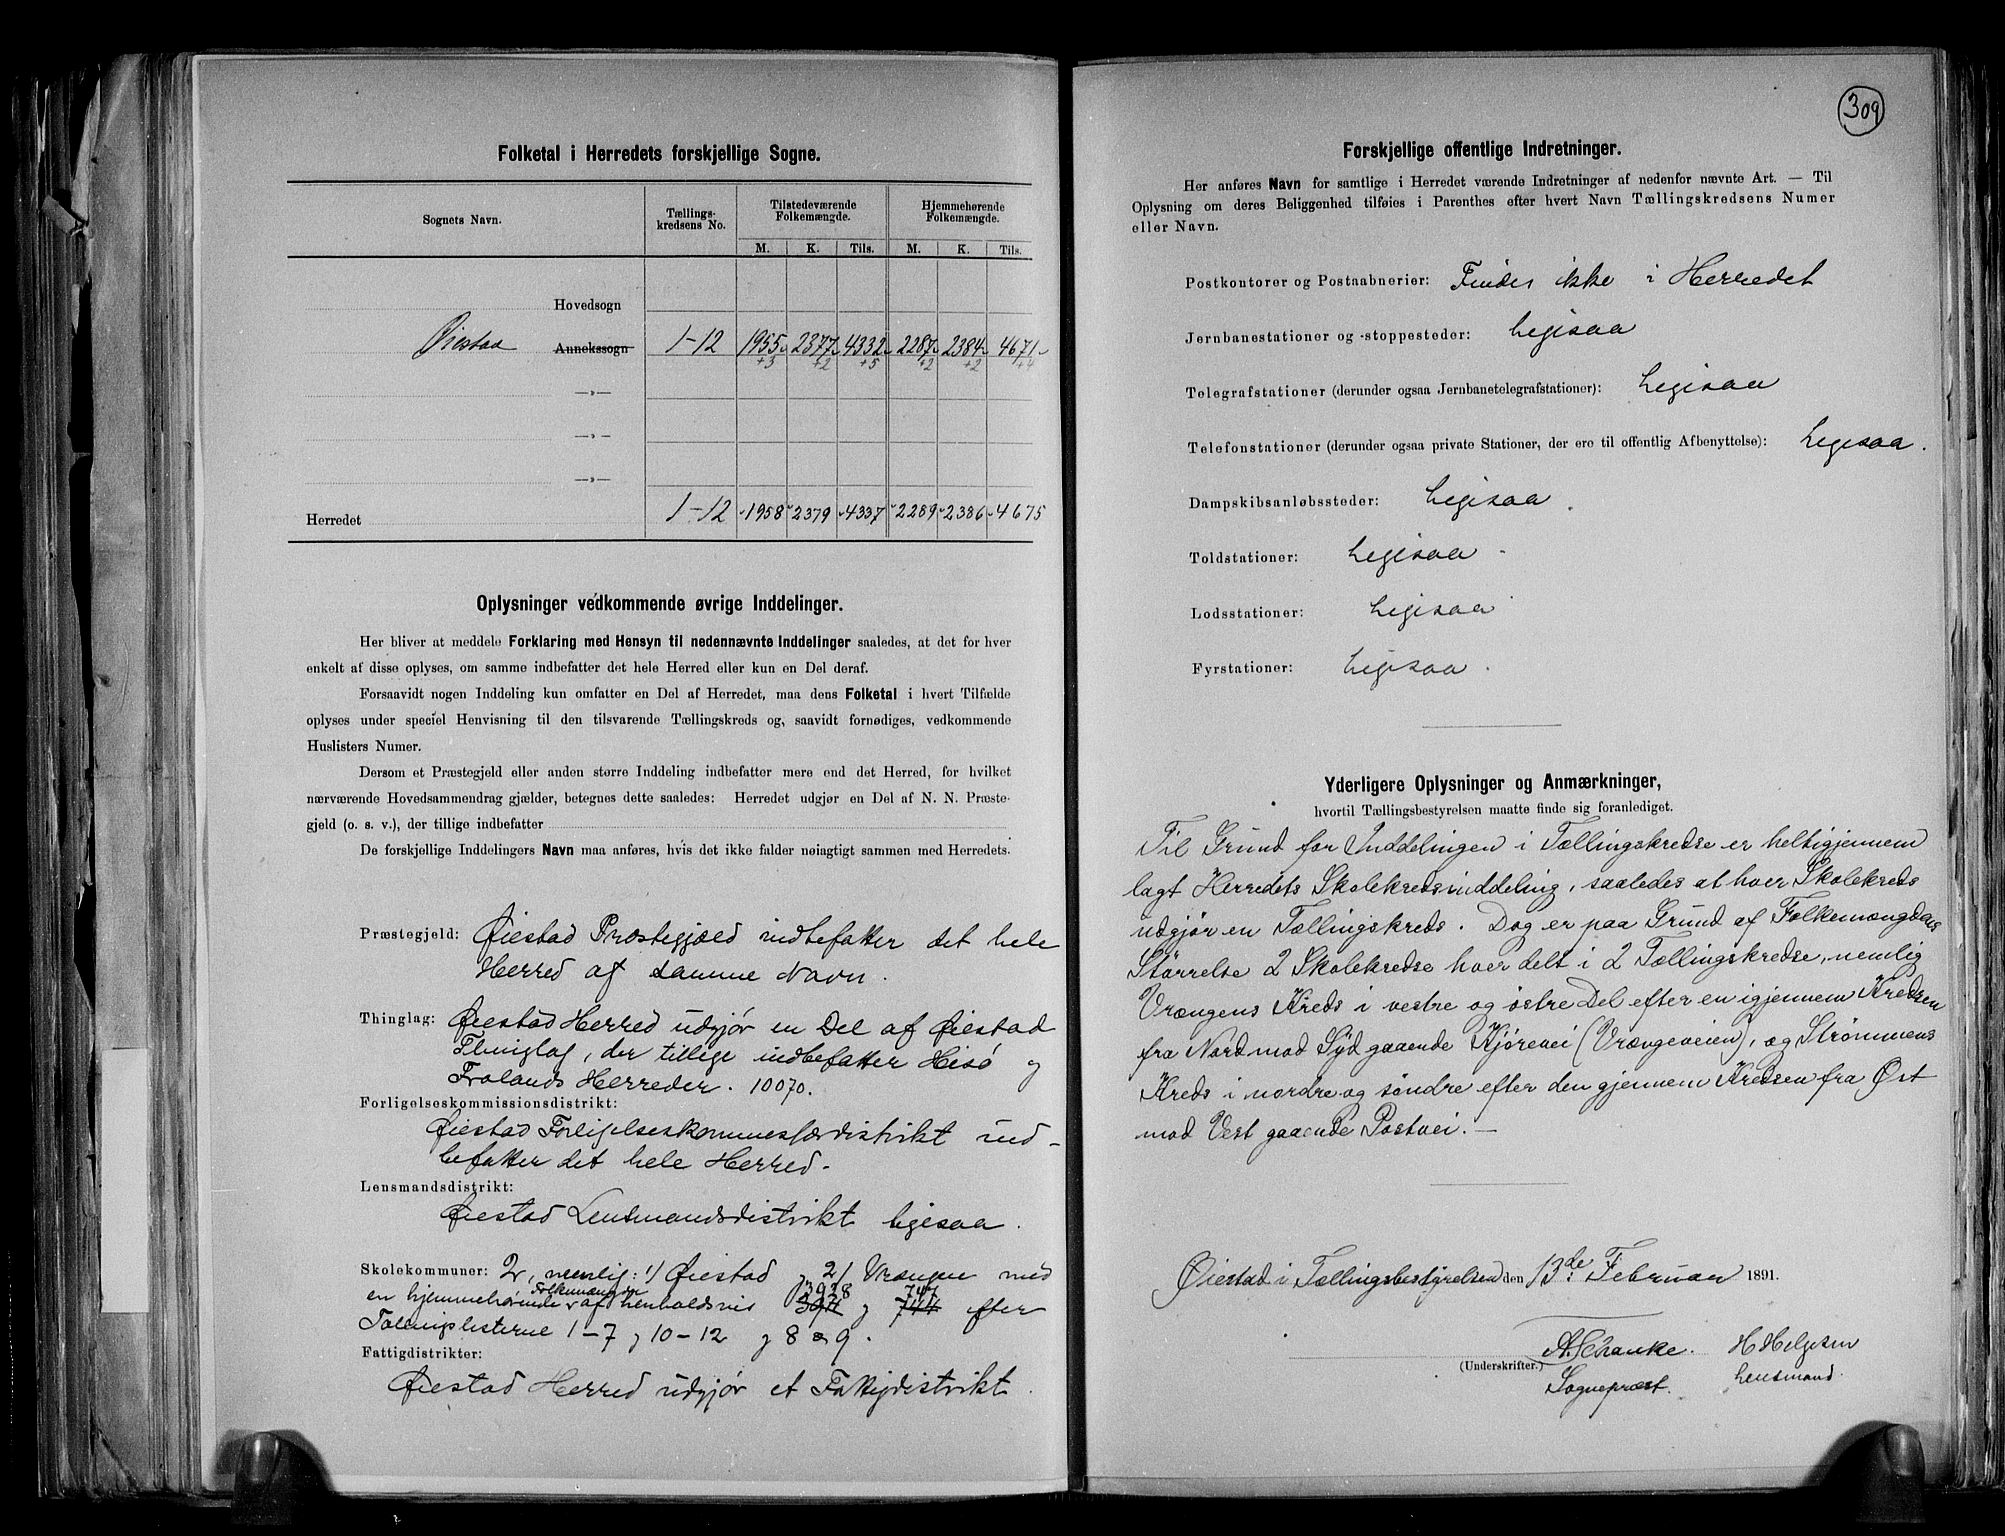 Folketal i Herredets forskjellige Sogne.
Sognets Navn. Tællings-kredsens No. Tilstedeværende Folkemængde. Hjemmehørende Folkemængde.
M. K. Tils. M. K. Tils.
Hovedsogn
Øiestad Annekssogn 1-12 1955 2377 4332 2287 2384 4671
+3 +2 +5 +2 +2 +4
—»—
—»—
—»—
Herredet 1-12 1958 2379 4337 2289 2386 4675
Oplysninger vedkommende øvrige Inddelinger.
Her bliver at meddele Forklaring med Hensyn til nedennævnte Inddelinger saaledes, at det for hver
enkelt af disse oplyses, om samme indbefatter det hele Herred eller kun en Del deraf.
Forsaavidt nogen Inddeling kun omfatter en Del af Herredet, maa dens Folketal i hvert Tilfælde
oplyses under speciel Henvisning til den tilsvarende Tællingskreds og, saavidt fornødiges, vedkommende
Huslisters Numer.
Dersom et Præstegjeld eller anden større Inddeling indbefatter mere end det Herred, for hvilket
nærværende Hovedsammendrag gjælder, betegnes dette saaledes: Herredet udgjør en Del af N. N. Præste-
gjeld (o. s. v.), der tillige indbefatter
De forskjellige Inddelingers Navn maa anføres, hvis det ikke falder nøiagtigt sammen med Herredets.
Præstegjeld: Øiestad Præstegjæld indbefatter det hele
Herred af samme Navn.
Thinglag: Øiestad Herred udgjør en Del af Øiestad
Thinglag, der tillige indbefatter Hisø og
Frolands Herreder. 10070.
Forligelseskommissionsdistrikt:
Øiestad Forligelseskommissærdistrikt ind-
befatter det hele Herred.
Lensmandsdistrikt:
Øiestad Lensmandsdistrikt ligesaa.
Skolekommuner: 2, nemlig: 1) Øiestad og 2) Vrængen med
Folkemængde 3928 747
en hjemmehørende af henholdsvis og 744 efter
Tællingslisterne 1-7 og 10-12 og 8 & 9.
Fattigdistrikter:
Øiestad Herred udgjør et Fattigdistrikt.
309
Forskjellige offentlige Indretninger.
Her anføres Navn for samtlige i Herredet værende Indretninger af nedenfor nævnte Art. — Til
Oplysning om deres Beliggenhed tilføies i Parenthes efter hvert Navn Tællingskredsens Numer
eller Navn.
Postkontorer og Postaabnerier: Findes ikke i Herredet
Jernbanestationer og -stoppesteder: Ligesaa
Telegrafstationer (derunder ogsaa Jernbanetelegrafstationer): Ligesaa
Telefonstationer (derunder ogsaa private Stationer, der ere til offentlig Afbenyttelse): Ligesaa.
Dampskibsanløbssteder: Ligesaa.
Toldstationer: Ligesaa.
Lodsstationer: Ligesaa
Fyrstationer: Ligesaa.
Yderligere Oplysninger og Anmærkninger,
hvortil Tællingsbestyrelsen maatte finde sig foranlediget.
Til Grund for Inddelingen i Tællingskredse er heltigjennem
lagt Herredets Skolekredsinddeling, saaledes at hver Skolekreds
udgjør en Tællingskreds. Dog er paa Grund af Folkemængdens
Størrelse 2 Skolekredse hver delt i 2 Tællingskredse, nemlig
Vrængens Kreds i vestre og østre Del efter en igjennem Kredsen
fra Nord mod Syd gaaende Kjørevei (Vrængeveien), og Strømmens
Kreds i nordre og søndre efter den gjennem Kredsen fra Øst
mod Vest gaaende Postvei. —
Øiestad i Tællingsbestyrelsen den 13de Februar 1891.
A. Schanke. H Helgesen
(Underskrifter.)
Sognepræst. Lensmand.